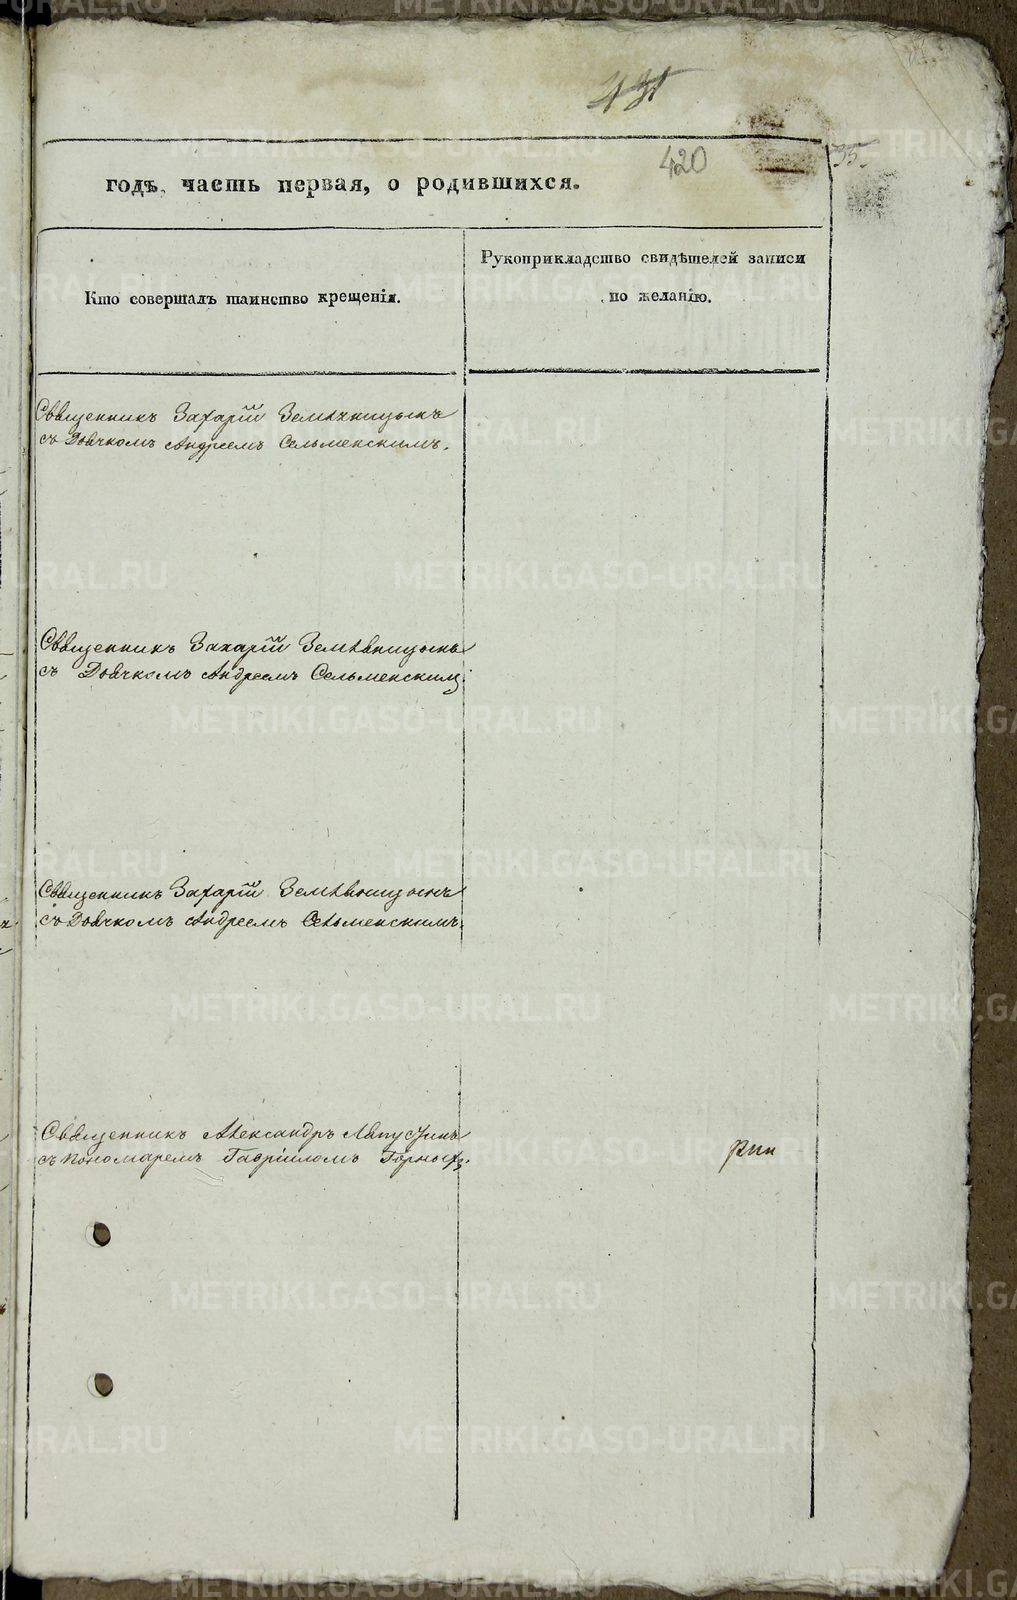 431
420
35.
годъ, часть первая, о родившихся.
Кто совершалъ таинство крещенія.
Рукоприкладство свидѣтелей записи
по желанію.
Священникъ Захарій Земляницынъ
съ Дьячкомъ Андреемъ Сельменскимъ.
Священникъ Захарій Земляницынъ
съ Дьячкомъ Андреемъ Сельменскимъ
Священникъ Захарій Земляницынъ
съ Дьячкомъ Андреемъ Сельменскимъ.
Священникъ Александръ Лапустинъ
съ Пономаремъ Гавріиломъ Горныхъ.
METRIKI.GASO-URAL.RU